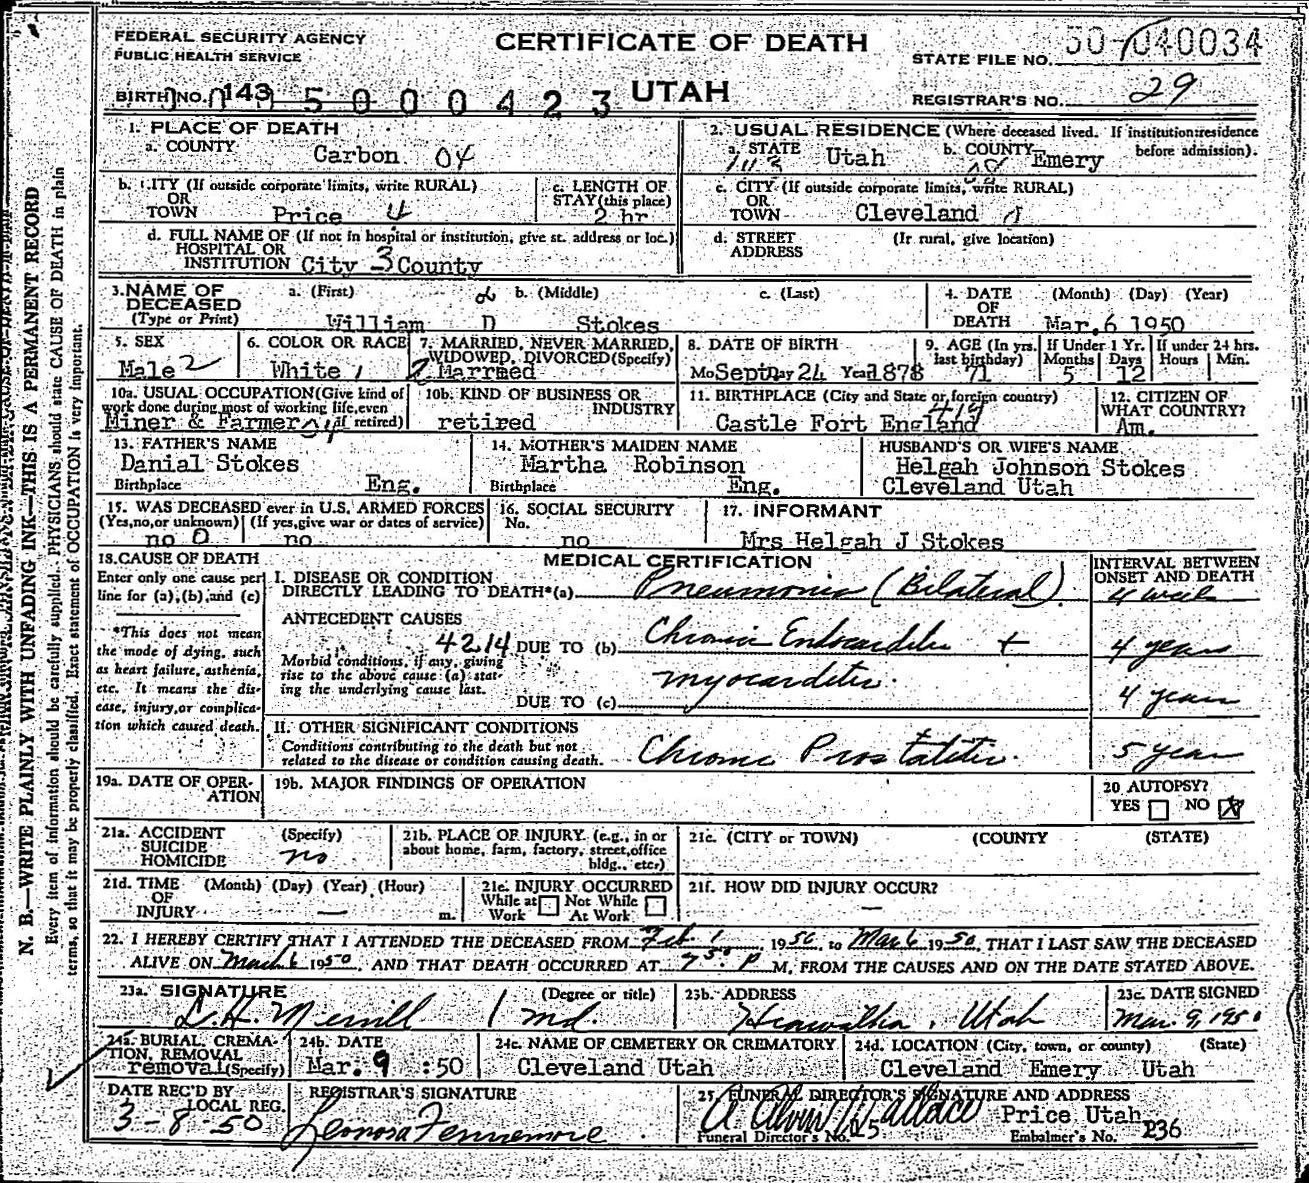 FEDERAL SECURITY AGENCY
PUBLIC HEALTH SERVICE
CERTIFICATE OF DEATH
UTAH
STATE FILE NO. 040034
REGISTRAR'S NO. 29
BIRTH NO. 143
5 0 0 0 4 2 3
1. PLACE OF DEATH
a. COUNTY
Carbon 04
2. USUAL RESIDENCE (Where deceased lived. If institution:residence before admission).
a. STATE Utah b. COUNTY Emery
b. CITY (If outside corporate limits, write RURAL)
OR
TOWN Price 4
c. LENGTH OF
STAY (this place)
2 hr
c. CITY (If outside corporate limits, write RURAL)
OR
TOWN Cleveland
d. FULL NAME OF (If not in hospital or institution, give st. address or loc.)
HOSPITAL OR
INSTITUTION City 3 County
d. STREET (If rural, give location)
ADDRESS
3. NAME OF DECEASED
(Type or Print)
a. (First) b. (Middle) c. (Last)
William D Stokes
4. DATE OF DEATH (Month) (Day) (Year)
Mar. 6 1950
5. SEX
Male 2
6. COLOR OR RACE
White 1
7. MARRIED, NEVER MARRIED,
WIDOWED, DIVORCED (Specify)
2 Marrmed
8. DATE OF BIRTH
Mo Sept Day 24 Year 1878
9. AGE (In yrs. last birthday)
71
If Under 1 Yr.
Months Days
5 12
If under 24 hrs.
Hours Min.
10a. USUAL OCCUPATION (Give kind of
work done during most of working life, even
if retired)
Miner & Farmer
10b. KIND OF BUSINESS OR
INDUSTRY
retired
11. BIRTHPLACE (City and State or foreign country)
Castle Fort England
12. CITIZEN OF
WHAT COUNTRY?
Am.
13. FATHER'S NAME
Danial Stokes
Birthplace Eng.
14. MOTHER'S MAIDEN NAME
Martha Robinson
Birthplace Eng.
HUSBAND'S OR WIFE'S NAME
Helgah Johnson Stokes
Cleveland Utah
15. WAS DECEASED ever in U.S. ARMED FORCES
(Yes,no,or unknown) (If yes,give war or dates of service)
no 0 no
16. SOCIAL SECURITY
No.
no
17. INFORMANT
Mrs Helgah J Stokes
18. CAUSE OF DEATH
Enter only one cause per
line for (a),(b),and (c)
*This does not mean
the mode of dying, such
as heart failure, asthenia,
etc. It means the dis-
ease, injury,or complica-
tion which caused death.
MEDICAL CERTIFICATION
INTERVAL BETWEEN
ONSET AND DEATH
I. DISEASE OR CONDITION
DIRECTLY LEADING TO DEATH*(a) Pneumonia (Bilateral) 4 week
ANTECEDENT CAUSES
4214 DUE TO (b) Chronic Endocarditis + 4 years
Morbid conditions, if any, giving
rise to the above cause (a) stat-
ing the underlying cause last.
myocarditis
DUE TO (c) 4 years
II. OTHER SIGNIFICANT CONDITIONS
Conditions contributing to the death but not
related to the disease or condition causing death.
Chronic Prostatitis 5 year
19a. DATE OF OPER-
ATION
19b. MAJOR FINDINGS OF OPERATION
20 AUTOPSY?
YES NO X
21a. ACCIDENT
SUICIDE
HOMICIDE
(Specify)
no
21b. PLACE OF INJURY (e.g., in or
about home, farm, factory, street,office
bldg., etc.)
21c. (CITY or TOWN) (COUNTY) (STATE)
21d. TIME (Month) (Day) (Year) (Hour)
OF
INJURY — m.
21e. INJURY OCCURRED
While at Work Not While At Work
21f. HOW DID INJURY OCCUR?
—
22. I HEREBY CERTIFY THAT I ATTENDED THE DECEASED FROM Feb. 1, 1950, to Mar 6 1950, THAT I LAST SAW THE DECEASED
ALIVE ON March 6 1950, AND THAT DEATH OCCURRED AT 7 50 P M, FROM THE CAUSES AND ON THE DATE STATED ABOVE.
23a. SIGNATURE (Degree or title)
L. H. Merrill md.
23b. ADDRESS
Hiawatha, Utah
23c. DATE SIGNED
Mar. 9, 1950
24a. BURIAL, CREMA-
TION, REMOVAL
(Specify)
removal
24b. DATE
Mar. 9 :50
24c. NAME OF CEMETERY OR CREMATORY
Cleveland Utah
24d. LOCATION (City, town, or county) (State)
Cleveland Emery Utah
DATE REC'D BY
LOCAL REG.
3-8-50
REGISTRAR'S SIGNATURE
Leonora Fennemore
25. FUNERAL DIRECTOR'S SIGNATURE AND ADDRESS
A Alvin Wallace Price Utah
Funeral Director's No. Embalmer's No. 236
N. B.—WRITE PLAINLY WITH UNFADING INK—THIS IS A PERMANENT RECORD
Every item of information should be carefully supplied. PHYSICIANS should state CAUSE OF DEATH in plain
terms, so that it may be properly classified. Exact statement of OCCUPATION is very important.